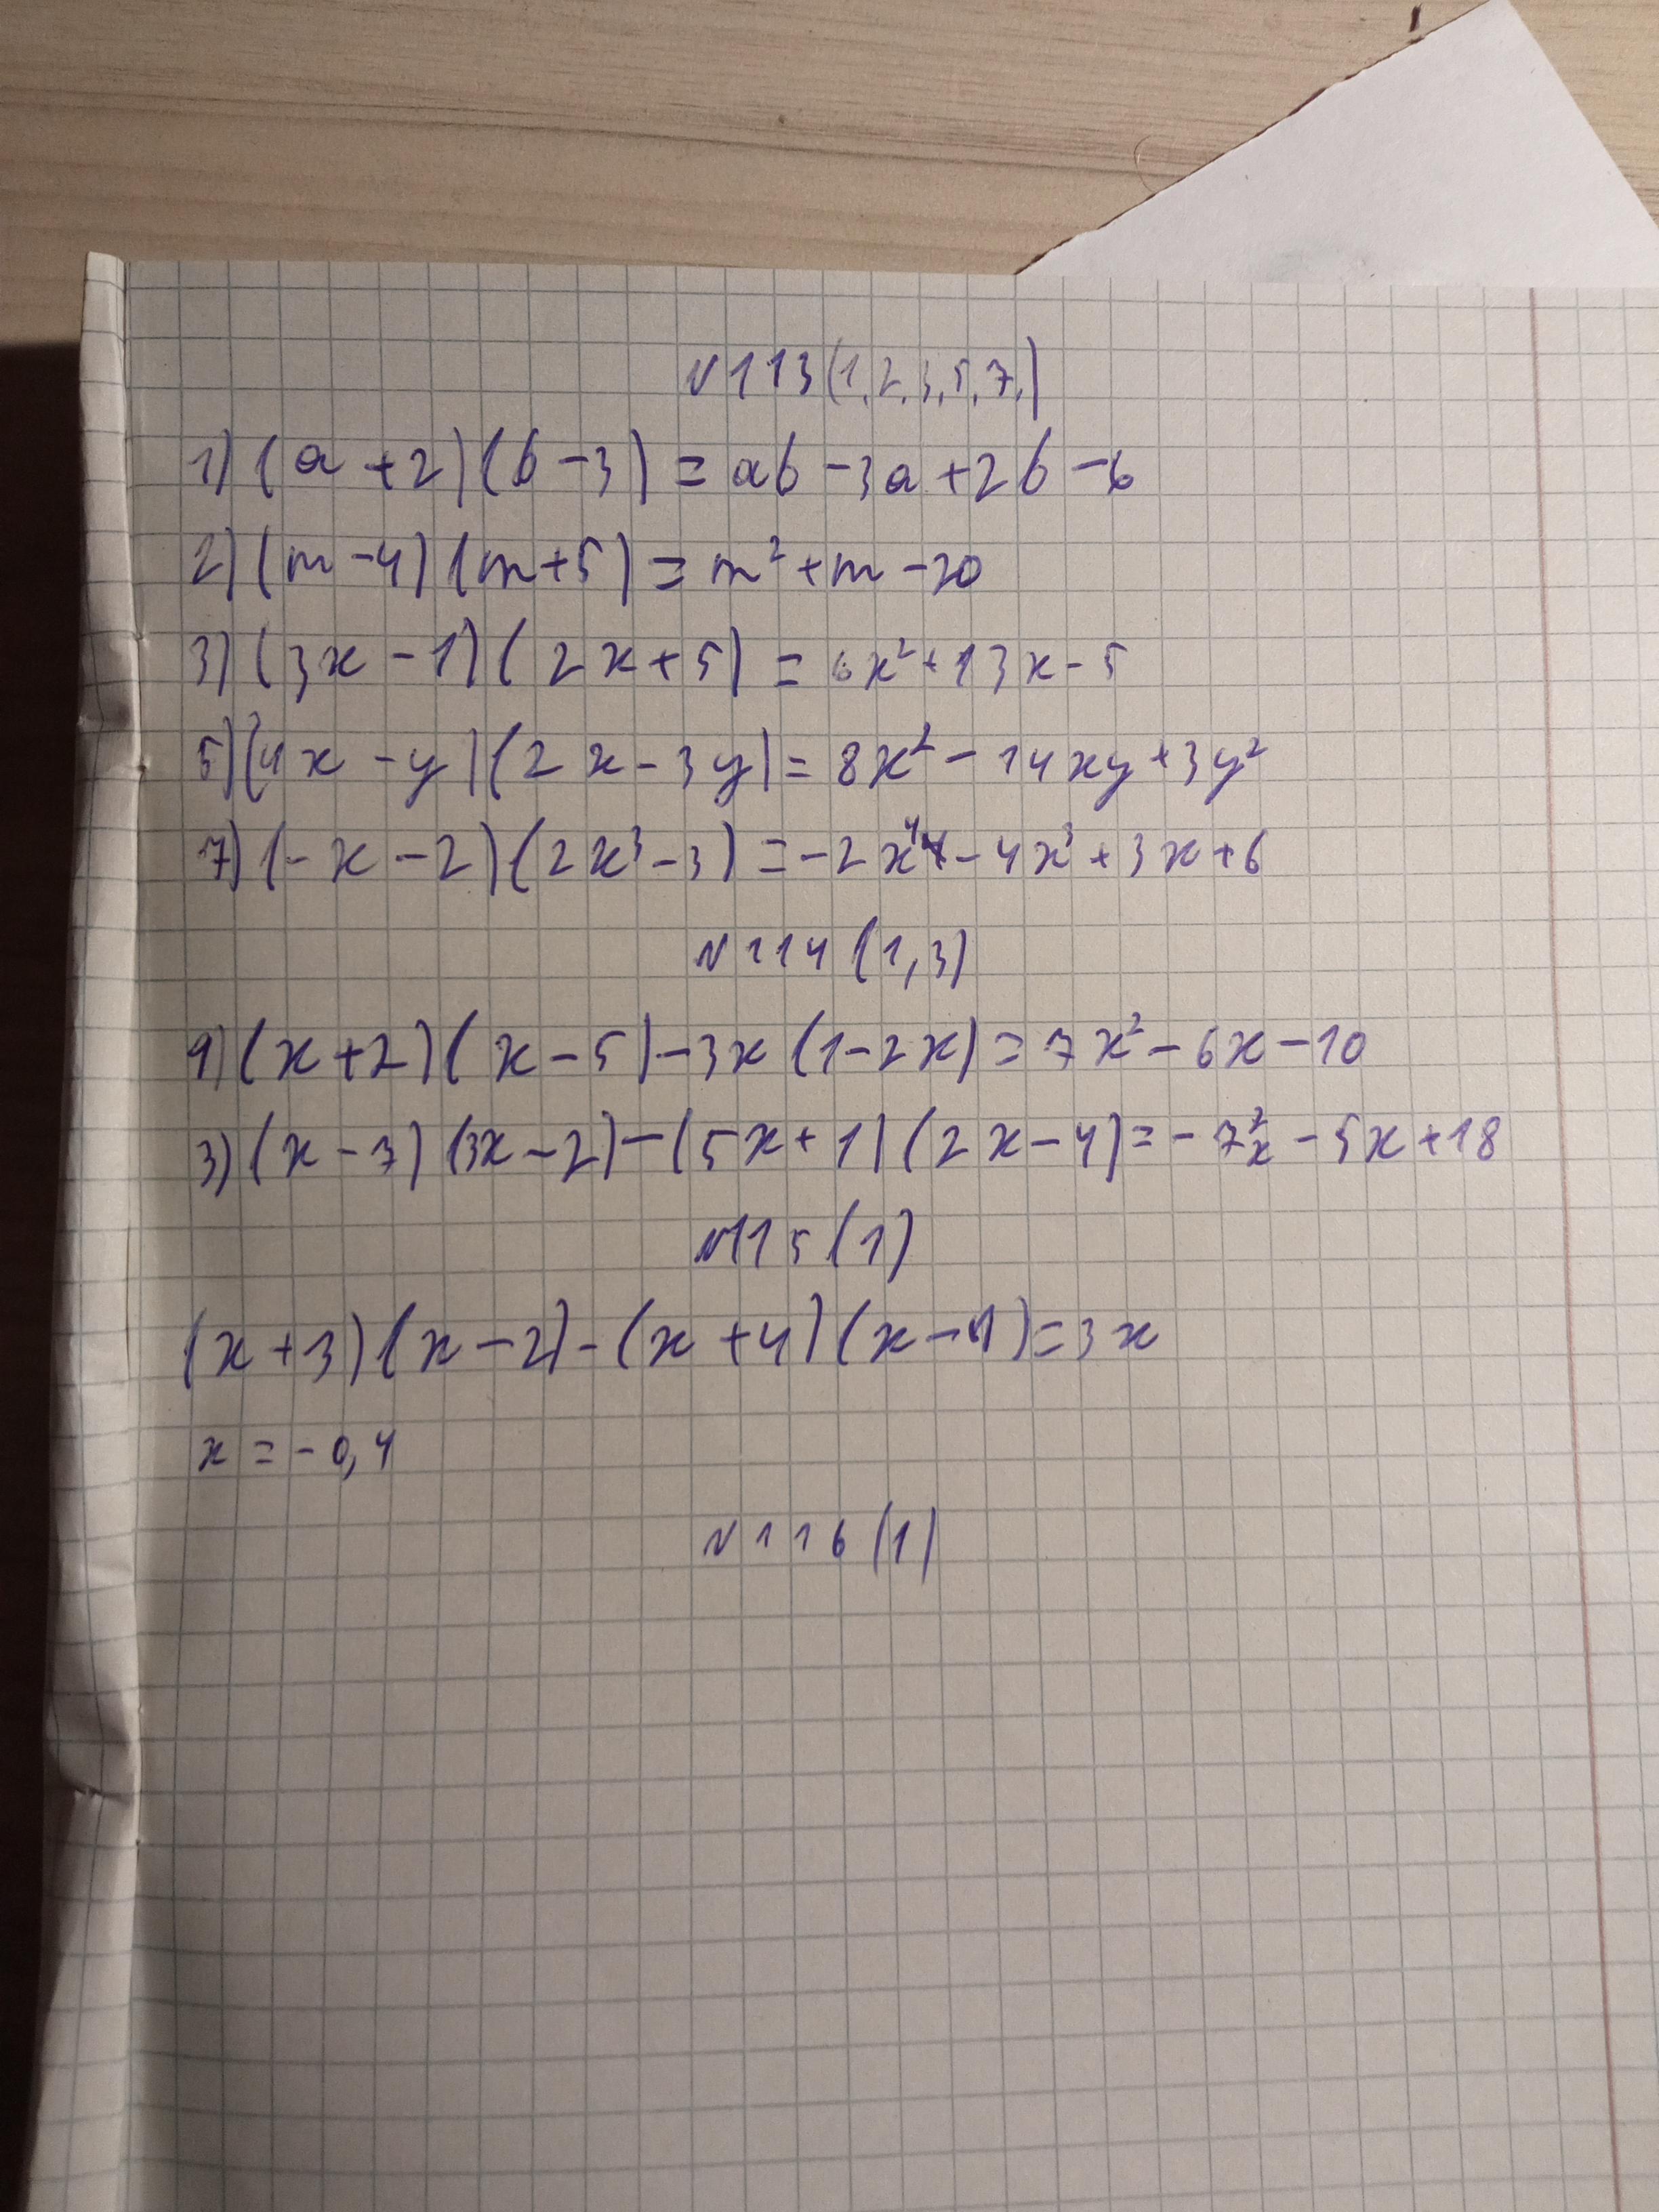 №113(1,2,3,5,7,)
1) (a+2)(b-3)=ab-3a+2b-6
2) (m-4)(m+5)=m²+m-20
3) (3x-1)(2x+5)=6x²+13x-5
5) (4x-y)(2x-3y)=8x²-14xy+3y²
7) (-x-2)(2x³-3)=-2x⁴-4x³+3x+6
№114(1,3)
1) (x+2)(x-5)-3x(1-2x)=7x²-6x-10
3) (x-7)(3x-2)-(5x+1)(2x-4)=-7²x-5x+18
№115(1)
(x+3)(x-2)-(x+4)(x-1)=3x
x=-0,4
№116(1)